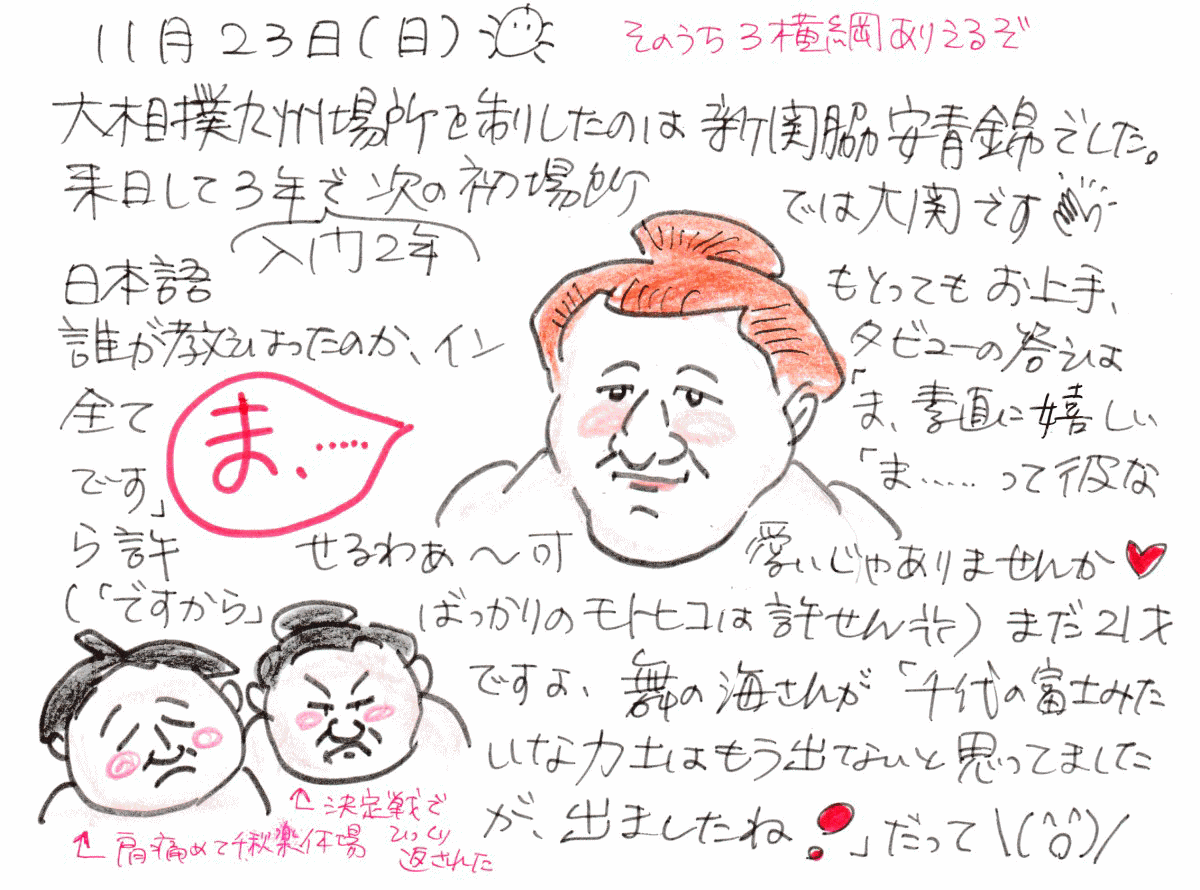 11月23日(日)
そのうち3横綱ありえるぞ
大相撲九州場所を制したのは新関脇安青錦でした。
来日して3年で次の初場所では大関です
入門2年
日本語もとってもお上手、
誰が教えはったのか、インタビューの答えは
全て「ま、素直に嬉しい
ま、……
です」「ま……って彼な
ら許せるわぁ〜可愛いじゃありませんか
(「ですから」ばっかりのモトヒコは許せん!!)まだ21才
ですよ、舞の海さんが「千代の富士みた
いな力士はもう出てないと思ってました
が、出ましたね!」だって\(^o^)/
↑決定戦で
ひっくり
返された
↑肩痛めて千秋楽休場